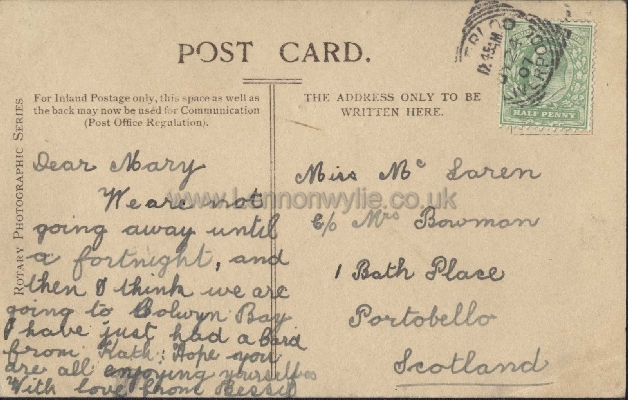 POST CARD.
For Inland Postage only, this space as well as
the back may now be used for Communication
(Post Office Regulation).
THE ADDRESS ONLY TO BE
WRITTEN HERE.
HALF PENNY
ROTARY PHOTOGRAPHIC SERIES
www.Lennonwylie.co.uk
Dear Mary
We are not
going away until
a fortnight, and
then I think we are
going to Colwyn Bay
I have just had a card
from Kath: Hope you
are all enjoying yourselves
With love from Bessie
Miss Mc Laren
c/o Mrs Bowman
1 Bath Place
Portobello
Scotland